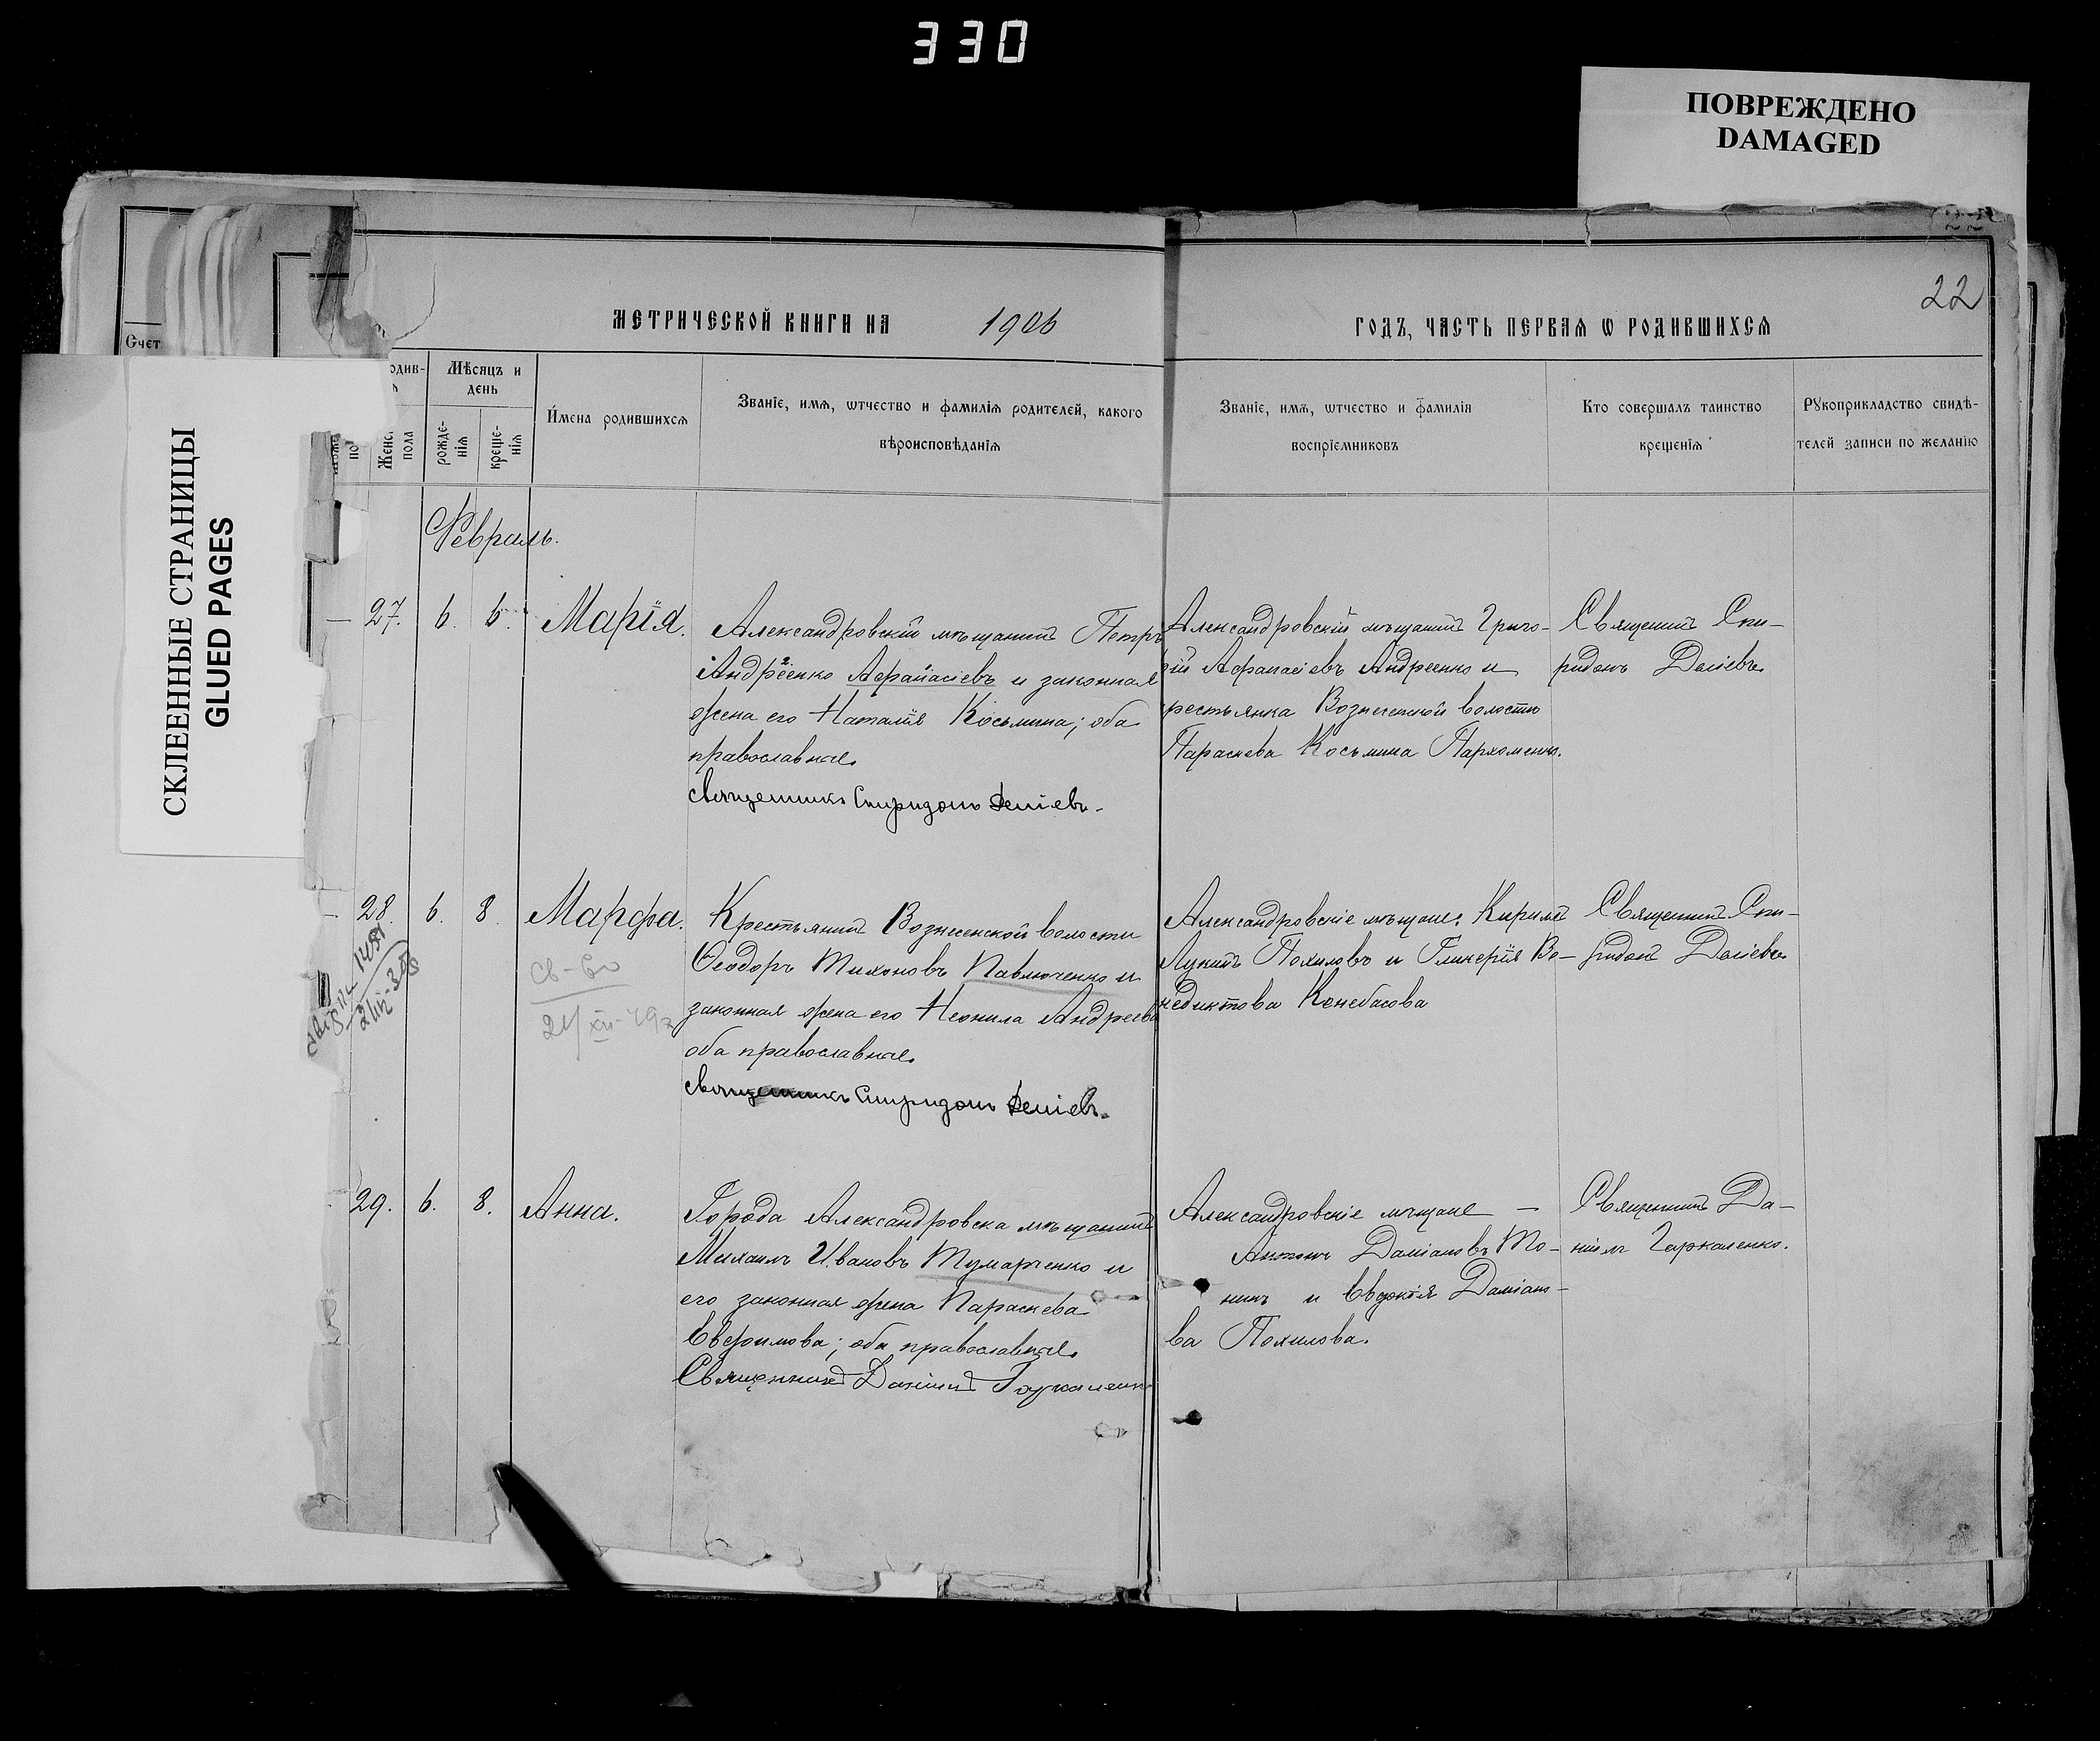 330
ПОВРЕЖДЕНО
DAMAGED
СКЛЕЕННЫЕ СТРАНИЦЫ
GLUED PAGES
Счет
22
МЕТРИЧЕСКОЙ КНИГИ НА 1906
ГОДЪ, ЧАСТЬ ПЕРВАѦ Ѡ РОДИВШИХСѦ
Женс
пола
Мѣсяцъ и
день
рожде-
нія
креще-
нія
Имена родившихся
Званіе, имя, ѡтчество и фамилія родителей, какого
вѣроисповѣданія
Званіе, имя, ѡтчество и фамилія
воспріемниковъ
Кто совершалъ таинство
крещенія
Рукоприкладство свидѣ-
телей записи по желанію
Февраль.
27. 6. 6. Марія.
Александровскій мѣщанинъ Петръ
Андреенко Афанасіевъ и законная
жена его Наталія Косьмина; оба
православные.
Священникъ Спиридонъ Деліевъ.
Александровскій мѣщанинъ Григо-
рій Афанасіевъ Андреенко и
крестьянка Вознесенской волости
Параскева Косьмина Пархоменко.
Священникъ Спи-
ридонъ Деліевъ.
28. 6. 8 Марфа.
Св-во
Крестьянинъ Вознесенской волости
Ѳеодоръ Тихоновъ Павлюченко и
законная жена его Неонила Андреева
оба православные.
Священникъ Спиридонъ Деліевъ.
Александровскіе мѣщане: Кириллъ
Лукинъ Похиловъ и Гликерія Ве-
недиктова Конебасова
Священникъ Спи-
ридонъ Деліевъ.
29. 6. 8. Анна.
Города Александровска мѣщанинъ
Михаилъ Ивановъ Тумарченко и
его законная жена Параскева
Евфимова; оба православные.
Священникъ Даніилъ Гаркаленко
Александровскіе мѣщане —
Антонъ Даміановъ То-
нинъ и Евдокія Даміано-
ва Похилова.
Священникъ Да-
ніилъ Гаркаленко.